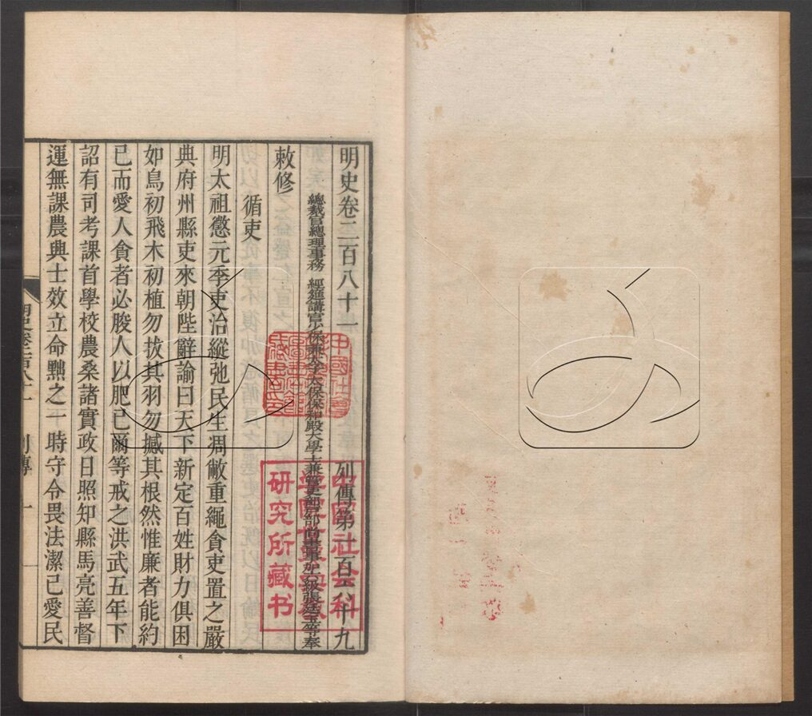 明史卷二百八十一 列傳第一百六十九
總裁官總理事務 經筵講官少保兼太子太保保和殿大學士兼管吏部戶部尚書事加六級張廷玉等奉
敕修
循吏
明太祖懲元季吏治縱弛民生凋敝重繩貪吏置之嚴
典府州縣吏來朝陛辭諭曰天下新定百姓財力俱困
如鳥初飛木初植勿拔其羽勿撼其根然惟廉者能約
己而愛人貪者必朘人以肥己爾等戒之洪武五年下
詔有司考課首學校農桑諸實政日照知縣馬亮善督
運無課農興士效立命黜之一時守令畏法潔己愛民
明史卷二百八十一 列傳 一
中國社會科學院文學研究所藏书